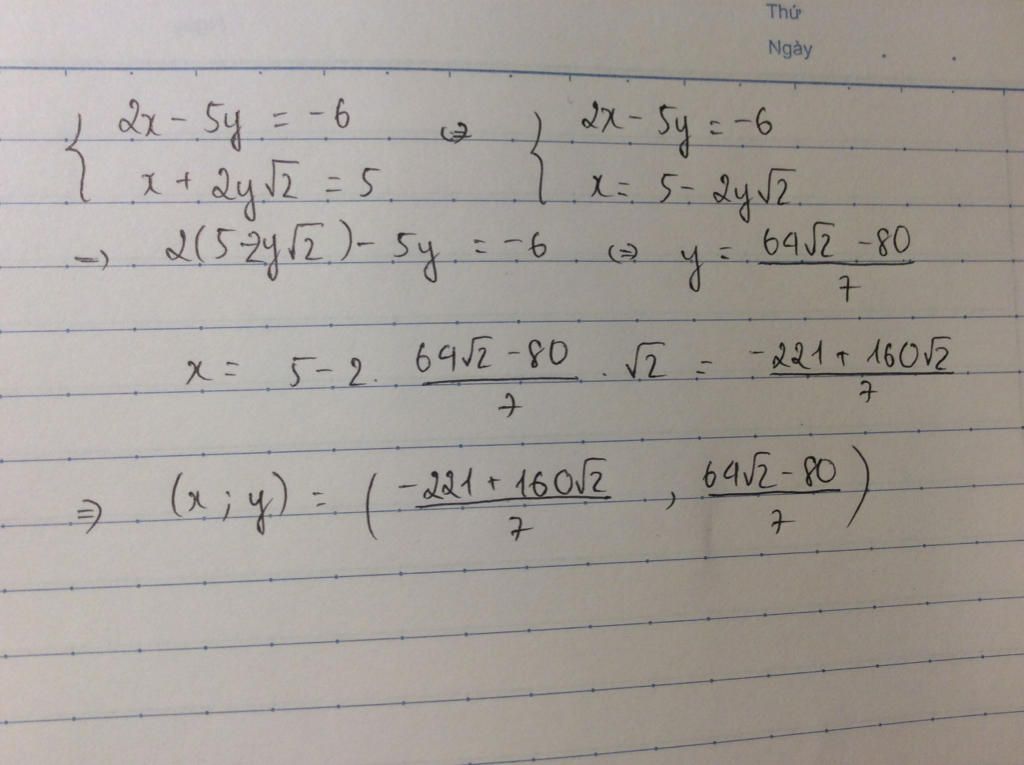 Thứ
Ngày
{ 2x - 5y = -6 ⇔ { 2x - 5y = -6
x + 2y√2 = 5 x = 5 - 2y√2
→ 2(5-2y√2) - 5y = -6 ⇔ y = (64√2 - 80)/7
x = 5 - 2. (64√2 - 80)/7 . √2 = (-221 + 160√2)/7
⇒ (x ; y) = ( (-221 + 160√2)/7 , (64√2 - 80)/7 )